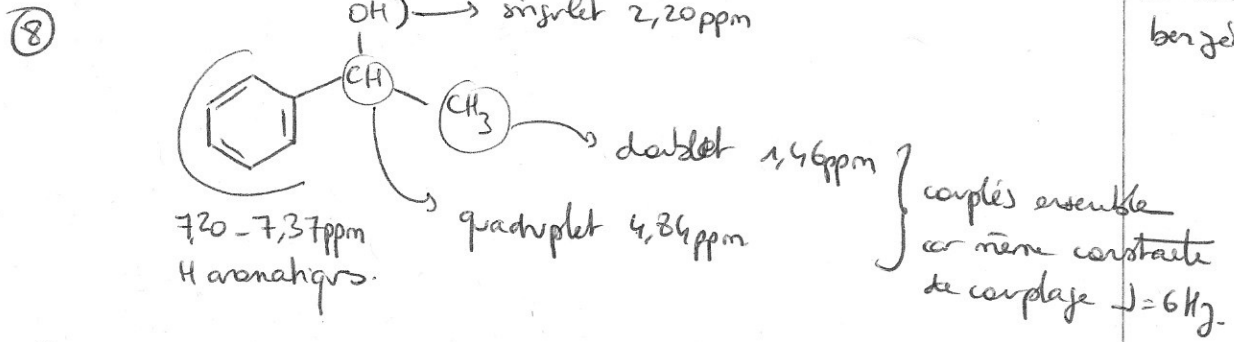 ⑧
OH → singulet 2,20ppm
CH
CH3
doublet 1,46ppm
quadruplet 4,84ppm
7,20-7,37ppm
H aromatiques.
couplés ensemble
car même constante
de couplage J=6Hz.